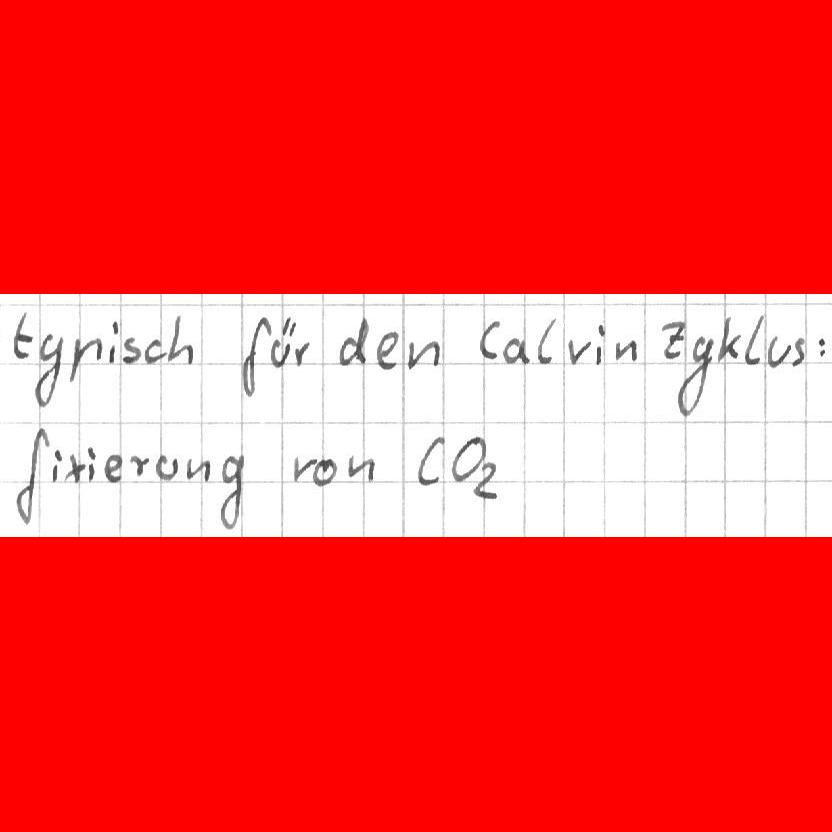 typisch für den Calvin Zyklus:
fixierung von CO₂